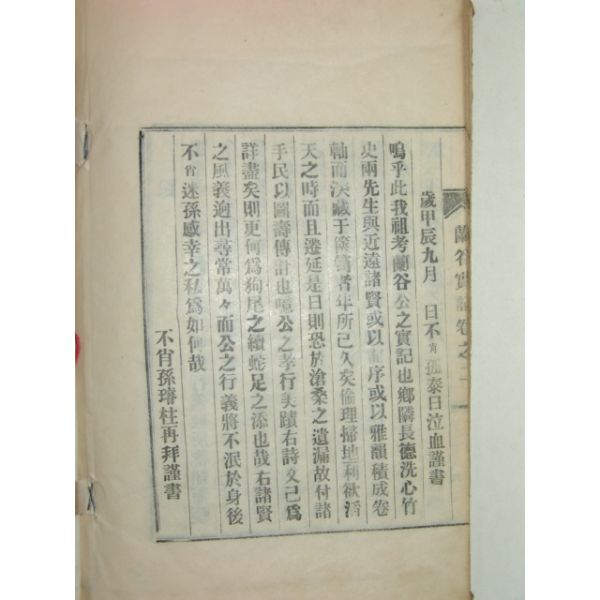 蘭谷實記卷之二
歲甲辰九月 日不肖孤泰日泣血謹書
嗚乎此我祖考蘭谷公之實記也鄉隣長德洗心竹
史兩先生與近遠諸賢或以序或以雅韻積成卷
軸而深藏于篋笥者年所已久矣倫理掃地利欲滔
天之時而且遷延是日則恐於滄桑之遺漏故付諸
手民以圖壽傳計也噫公之孝行美蹟右詩文已爲
詳盡矣則更何爲狗尾之續蛇足之添也哉右諸賢
之風義逈出尋常萬々而公之行義將不泯於身後
不肖迷孫感幸之私爲如何哉
不肖孫璿柱再拜謹書